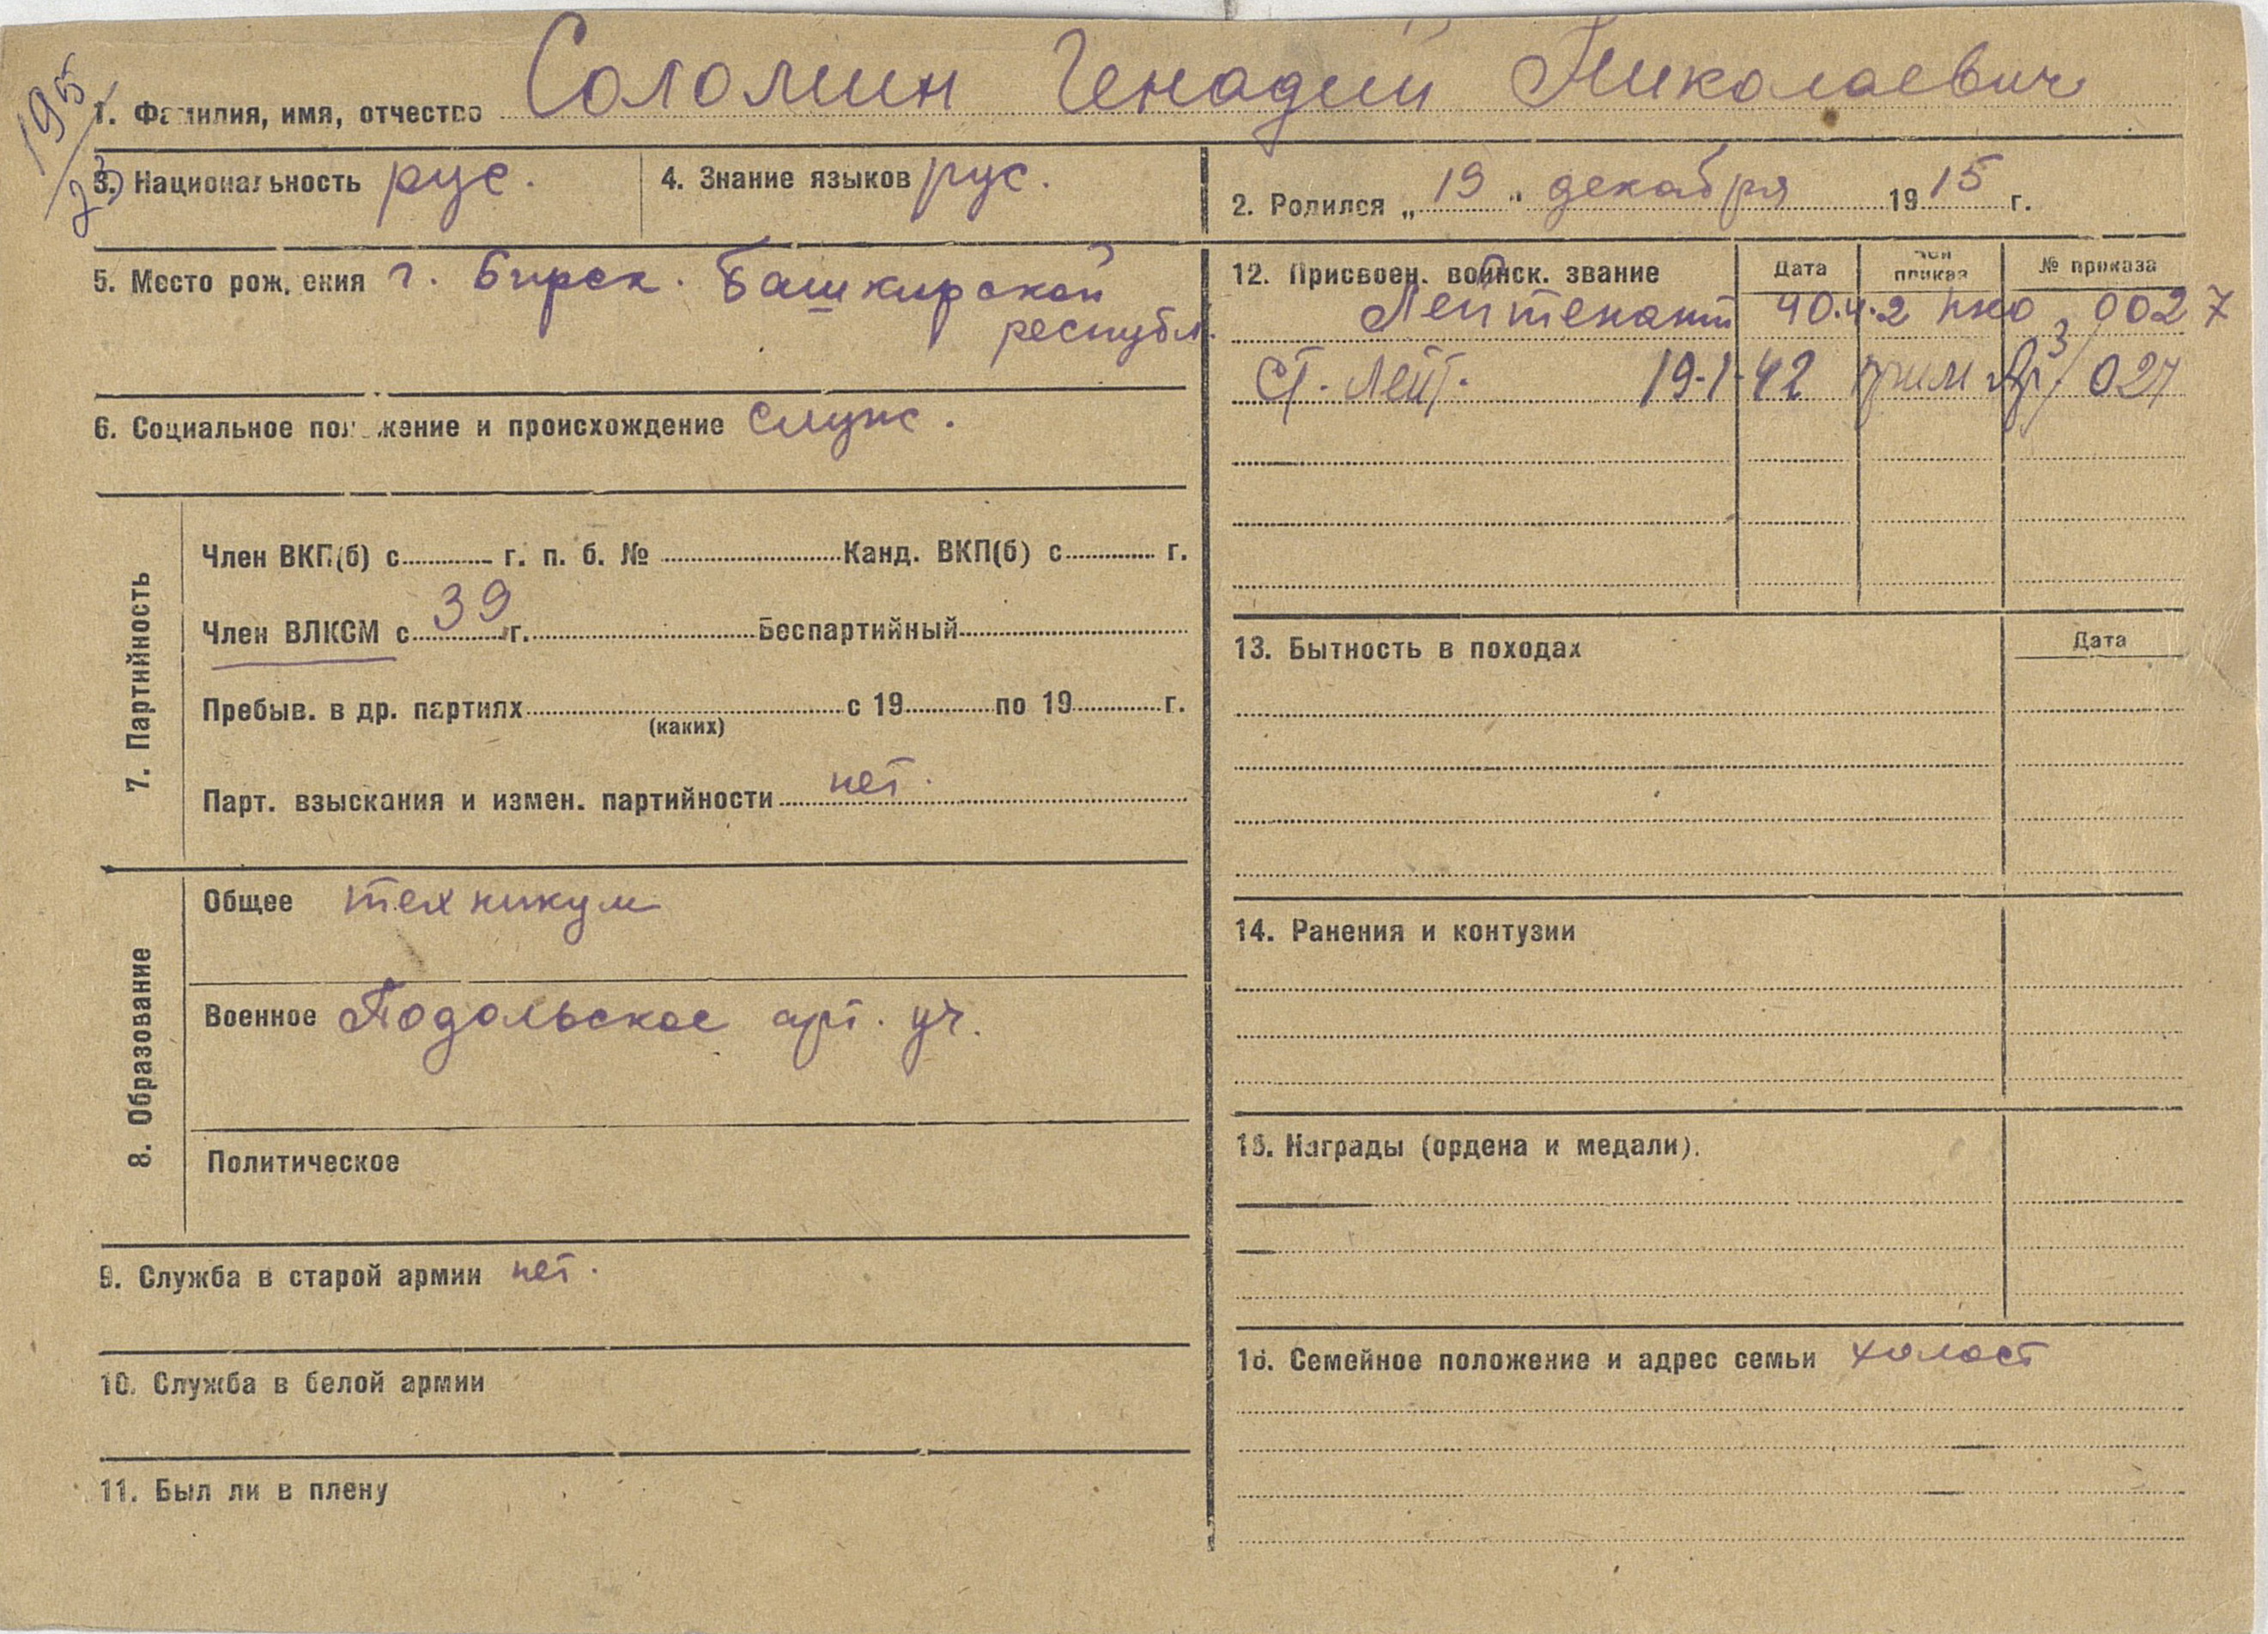 195/23
1. Фамилия, имя, отчество Соломин Генадий Николаевич
3. Национальность рус. 4. Знание языков рус.
2. Родился „ 19 " декабря 1915 г.
5. Место рождения г. Бирск. Башкирской
республ.
6. Социальное положение и происхождение служ.
7. Партийность
Член ВКП(б) с г. п. б. № Канд. ВКП(б) с г.
Член ВЛКСМ с 39 г. Беспартийный
Пребыв. в др. партиях с 19 по 19 г.
(каких)
Парт. взыскания и измен. партийности нет.
8. Образование
Общее техникум
Военное Подольское арт. уч.
Политическое
9. Служба в старой армии нет.
10. Служба в белой армии
11. Был ли в плену
12. Присвоен. воинск. звание Дата Чей приказ № приказа
Лейтенант 40.4.2 НКО 0027
Ст. Лейт. 19.1.42 027
13. Бытность в походах Дата
14. Ранения и контузии
15. Награды (ордена и медали).
16. Семейное положение и адрес семьи холост